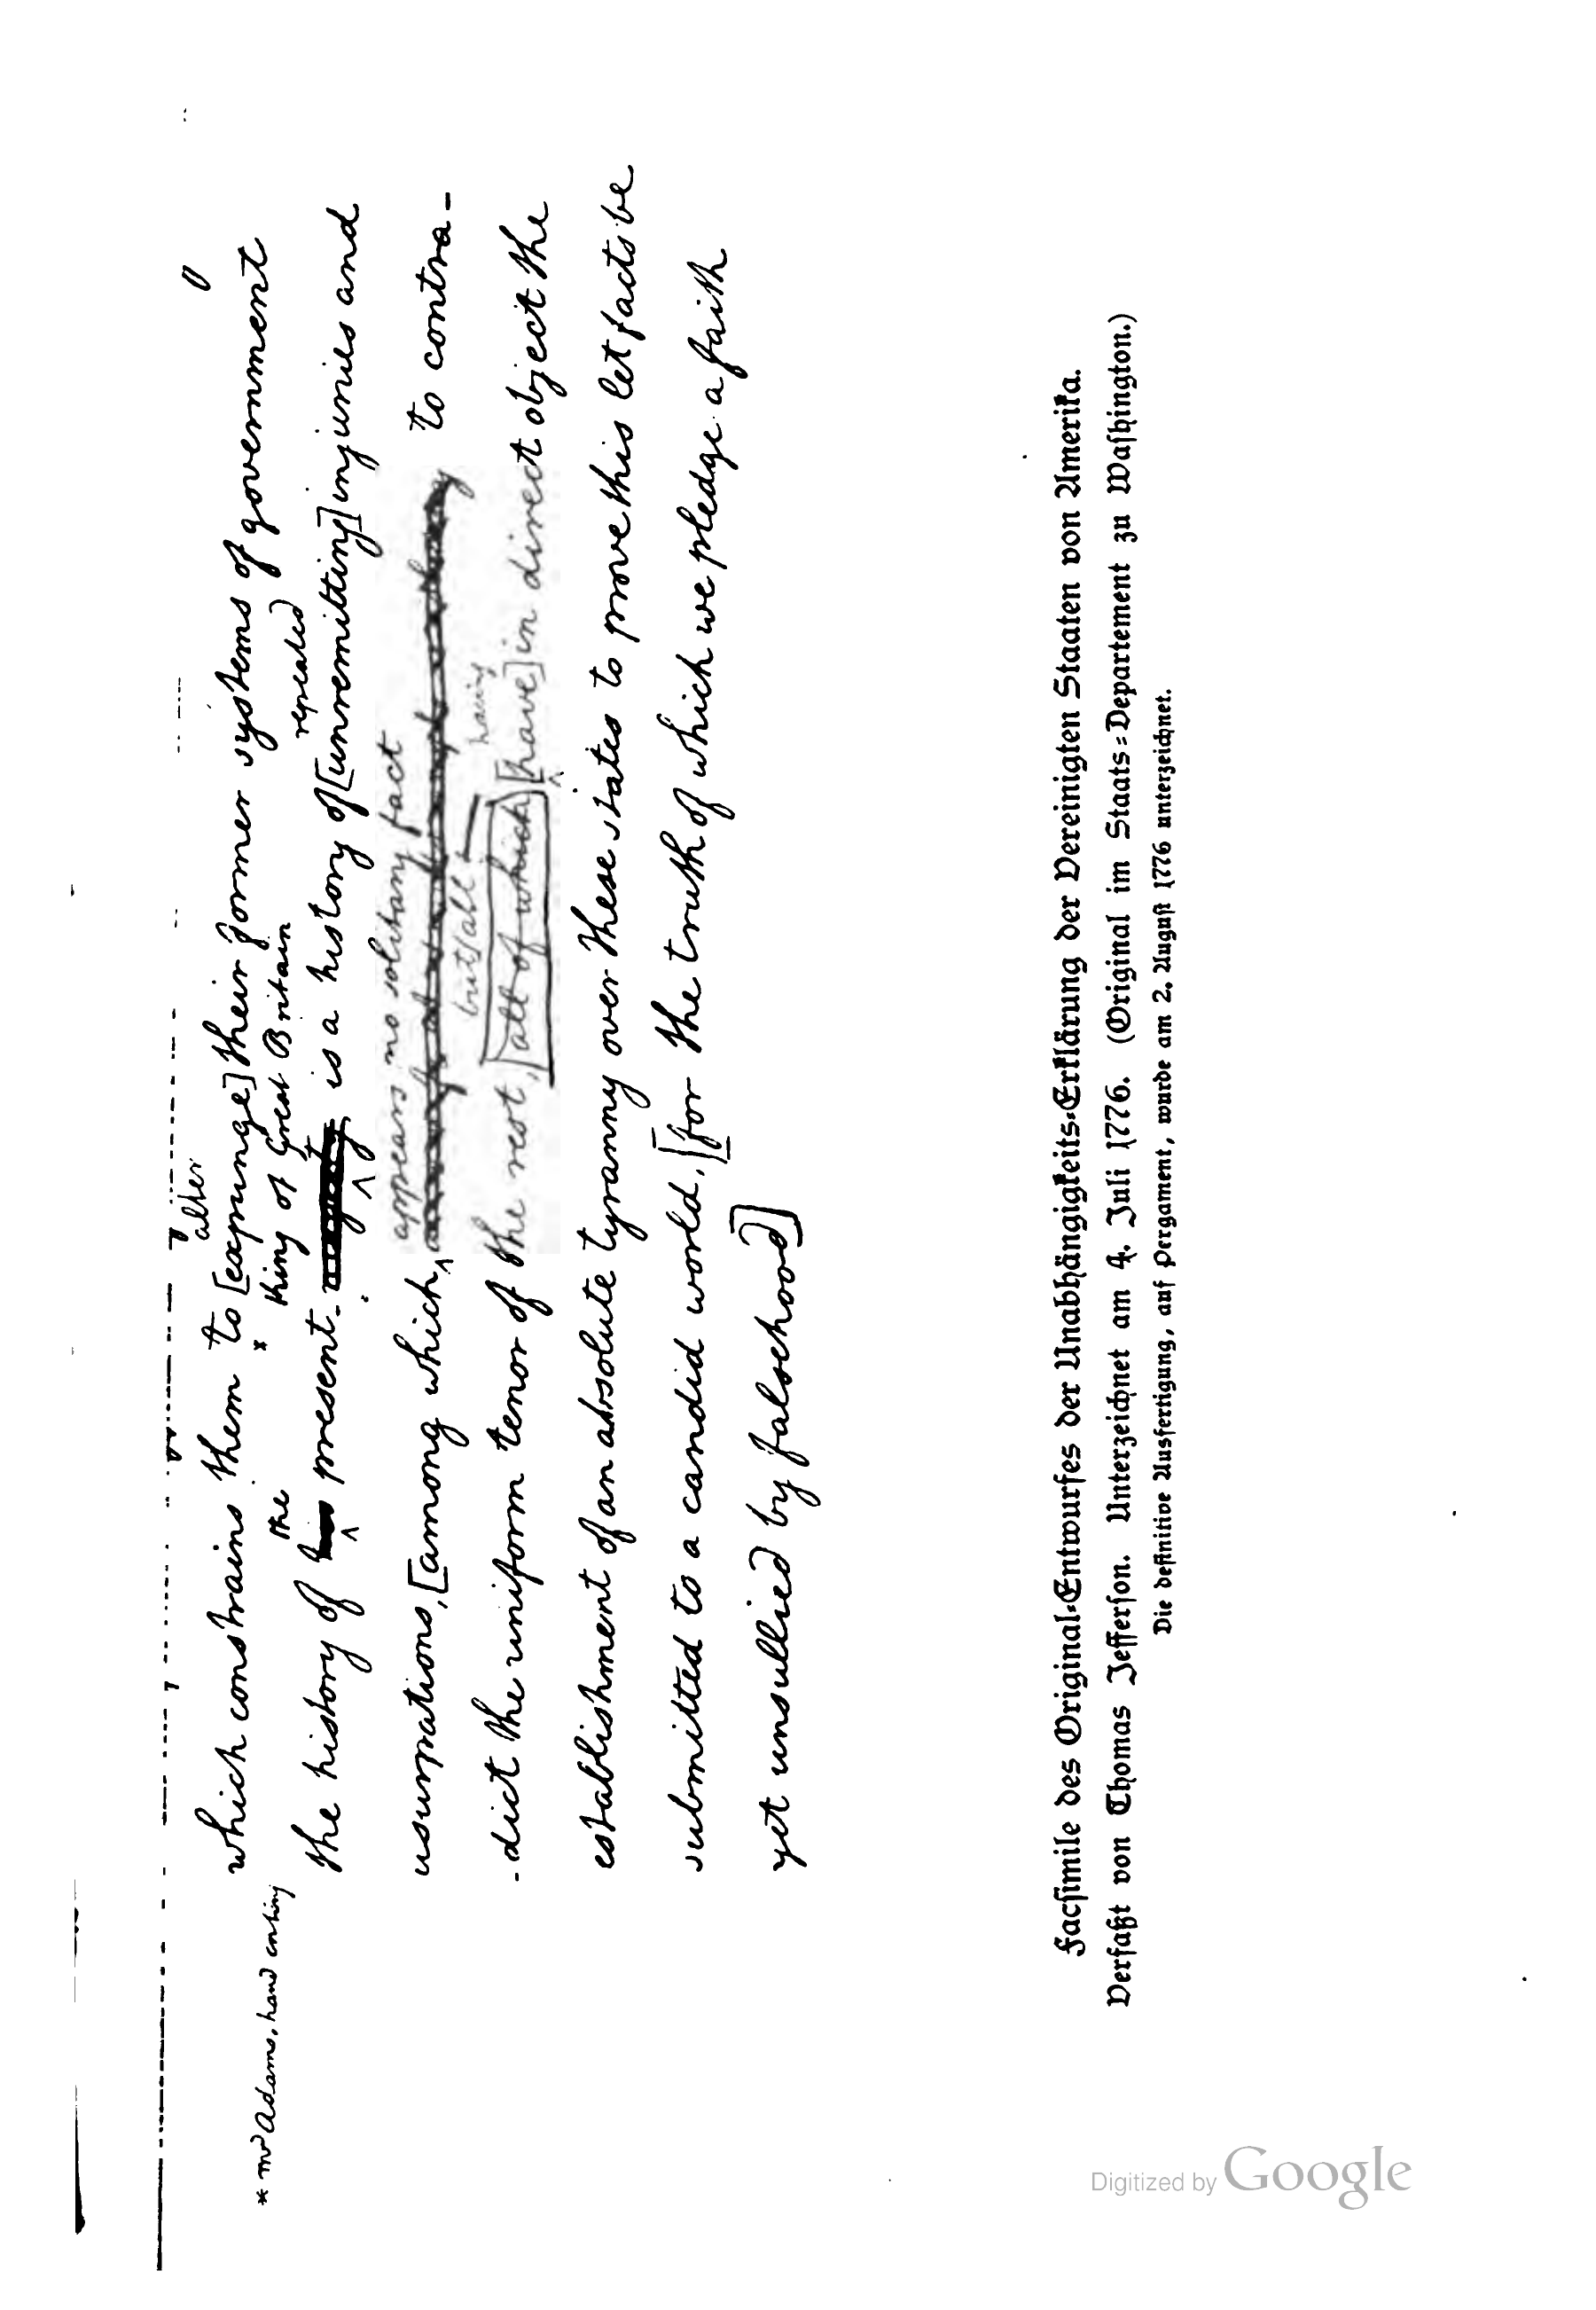 alter
which constrains them to [expunge] their former systems of government
* king of Great Britain
the
repeated
the history of his present is a history of [unremitting] injuries and
appears no solitary fact
usurpations, [among which to contra-
but all
having
-dict the uniform tenor of the rest, [all of which] [have] in direct object the
establishment of an absolute tyranny over these states to prove this let facts be
submitted to a candid world, [for the truth of which we pledge a faith
yet unsullied by falsehood]
* mr Adams, hand writing
Facsimile des Original-Entwurfes der Unabhängigkeits-Erklärung der Vereinigten Staaten von Amerika.
Verfaßt von Thomas Jefferson. Unterzeichnet am 4. Juli 1776. (Original im Staats-Departement zu Washington.)
Die definitive Ausfertigung, auf Pergament, wurde am 2. August 1776 unterzeichnet.
Digitized by Google